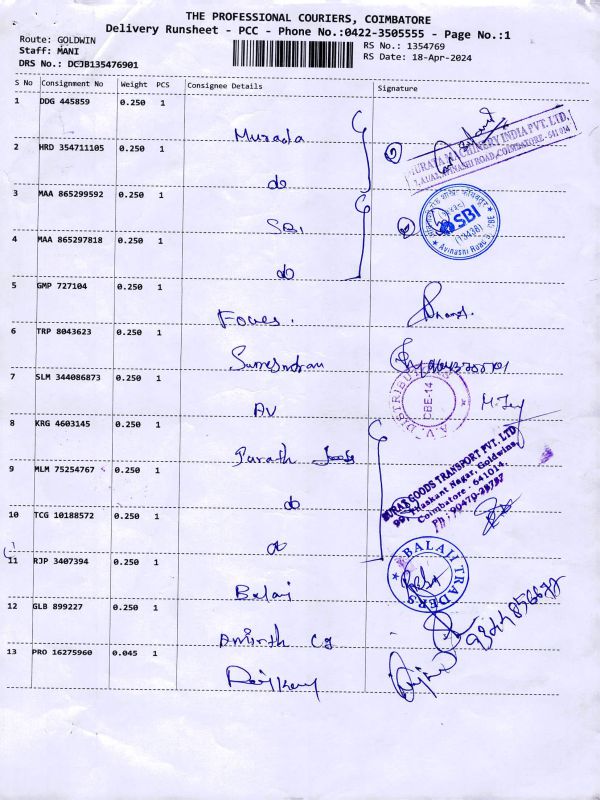 THE PROFESSIONAL COURIERS, COIMBATORE
Delivery Runsheet - PCC - Phone No.:0422-3505555 - Page No.:1
Route: GOLDWIN
Staff: MANI
DRS No.: DCJB135476901
RS No.: 1354769
RS Date: 18-Apr-2024
S No Consignment No Weight PCS Consignee Details Signature
1 DDG 445859 0.250 1
Murada
2 HRD 354711105 0.250 1
do
MURATA MACHINERY INDIA PVT. LTD.
AVINASHI ROAD, COIMBATORE - 641 014
3 MAA 865299592 0.250 1
SBI
SBI
Avinashi Road
4 MAA 865297818 0.250 1
do
5 GMP 727104 0.250 1
Foues.
6 TRP 8043623 0.250 1
7 SLM 344086873 0.250 1
AV
A.V. DISTRIBU
CBE-14
8 KRG 4603145 0.250 1
9 MLM 75254767 0.250 1
do
GOODS TRANSPORT PVT. LTD
Tilaskant Nagar, Goldwins,
Coimbatore - 641014.
10 TCG 10188572 0.250 1
do
11 RJP 3407394 0.250 1
Balaj
BALAJI TRADERS
12 GLB 899227 0.250 1
Amirth
13 PRO 16275960 0.045 1